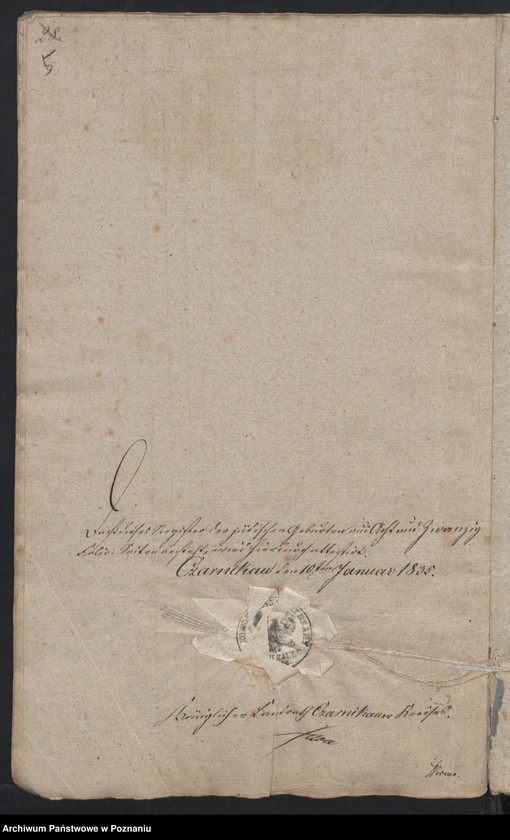 28.
5
Daß dieses Register der jüdischen Geburten aus Acht und Zwanzig
Folio-Seiten besteht, wird hierauf attestirt.
Czarnikau den 10ten Januar 1835.
Königlicher Landrath Czarnikauer Kreises.
Archiwum Państwowe w Poznaniu